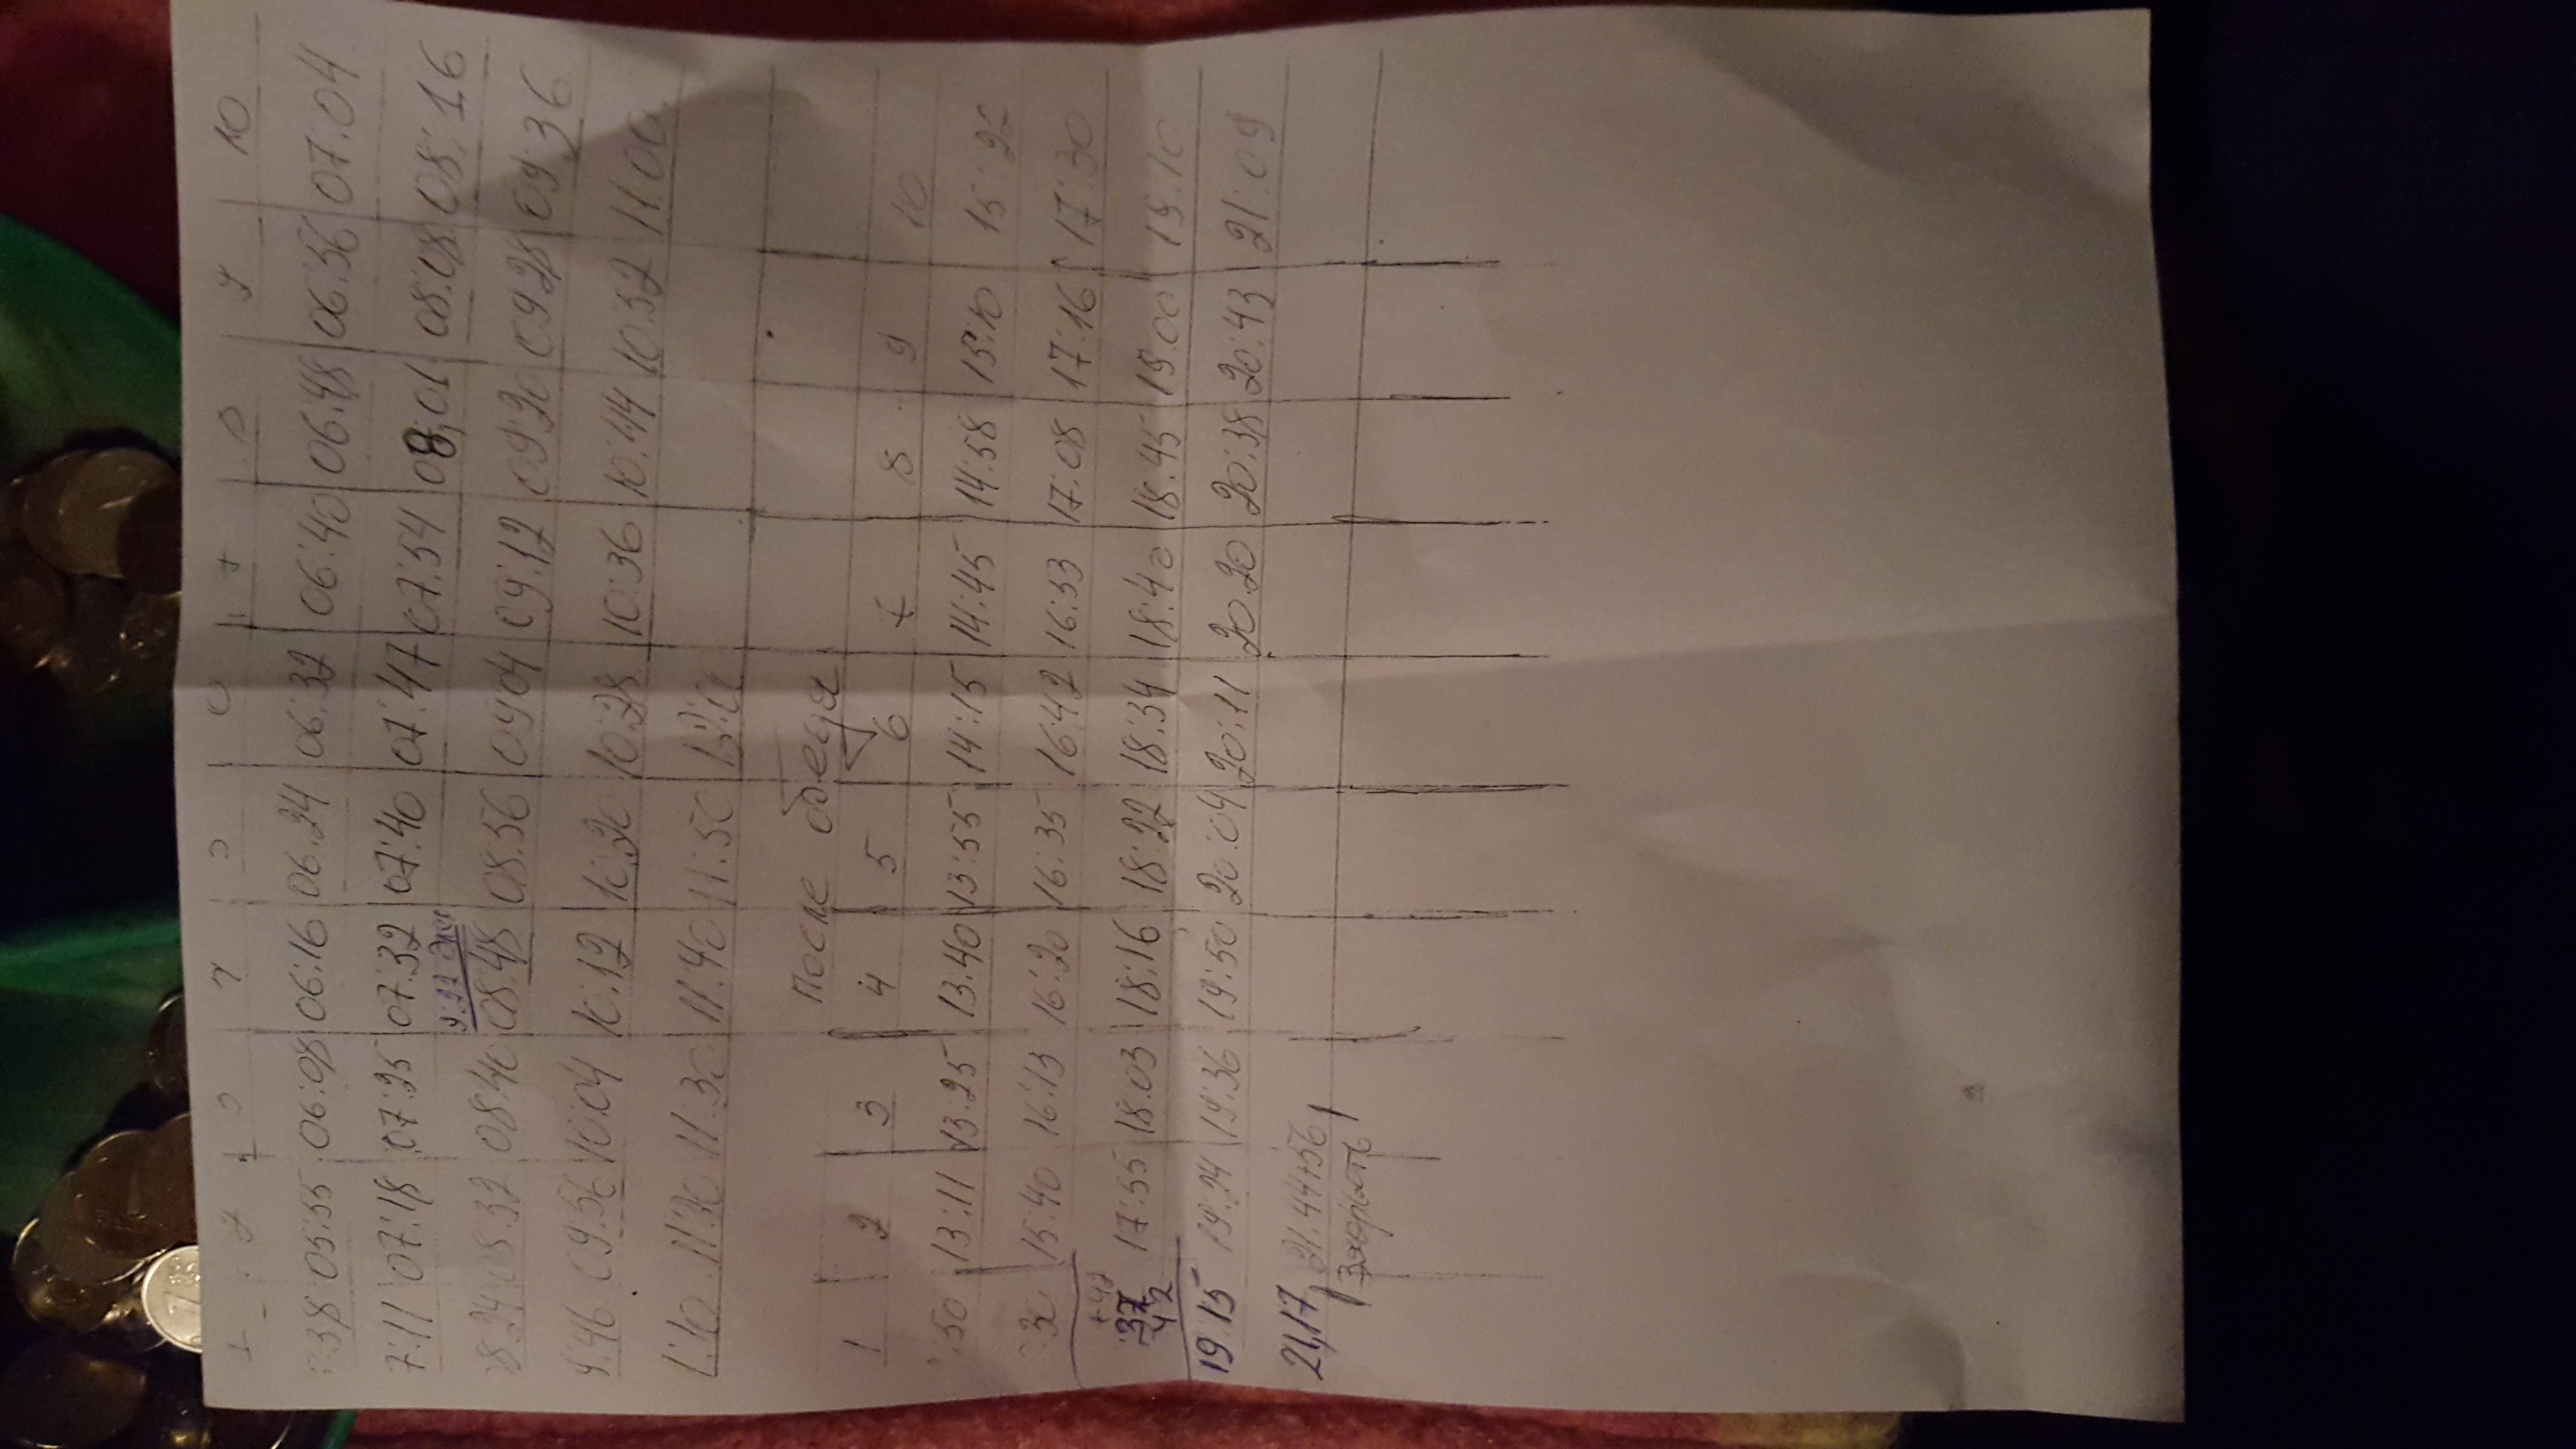 1 2 3 4 5 6 7 8 9 10
:38 05:55 06:08 06:16 06:24 06:32 06:40 06:48 06:56 07:04
7:11 07:18 07:25 07:32 07:40 07:47 07:54 08:01 08:08 08:16
8:24 08:32 08:40 08:48 08:56 09 04 09:12 09:20 09 28 09:36
9:46 09:56 10:04 10:12 10:20 10:28 10:36 10:44 10:52 11:00
11:30 11:30 11:40 11:50
После обеда
1 2 3 4 5 6 7 8 9 10
:50 13:11 13:25 13:40 13:55 14:15 14:45 14:58 15:10 15:22
:30 15:40 16:13 16:20 16:35 16:42 16:53 17:08 17:16 17:30
+42
:37 17:55 18:03 18:16 18:22 18:34 18:40 18:45 19:00 19:10
42
19:15 19:24 19:36 19:50 20:04 20:11 20:20 20:38 20:43 21:09
21,17 21:44+56